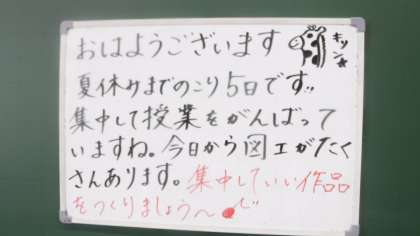 おはようございます
キリン
夏休みまでのこり5日です!!
集中して授業をがんばって
いますね。今日から図工がたく
さんあります。集中していい作品
をつくりましょう〜